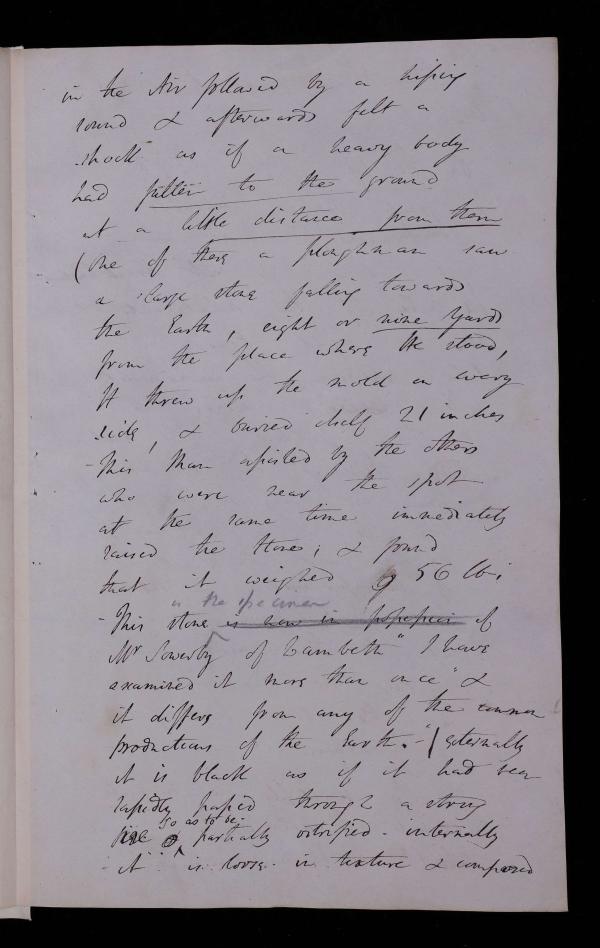 in the Air followed by a hissing
sound & afterwards felt a
shock as if a heavy body
had fallen to the ground
at a little distance from them
(One of these a ploughman saw
a large stone falling towards
the Earth, eight or nine Yards
from the place where He stood,
It threw up the mold on every
side, & buried itself 21 inches
- This Man assisted by the others
who were near the spot
at the same time immediately
raised the stone; & found
that it weighed 56 lbs.
is the specimen
- This stone is now in possession of
Mr Sowerby of Lambeth "I have
examined it more than once" &
it differs from any of the common
productions of the Earth." - (externally
it is black as if it had been
rapidly passed through a strong
so as to be
fire & partially vitrified - internally
- it is loose in texture & composed